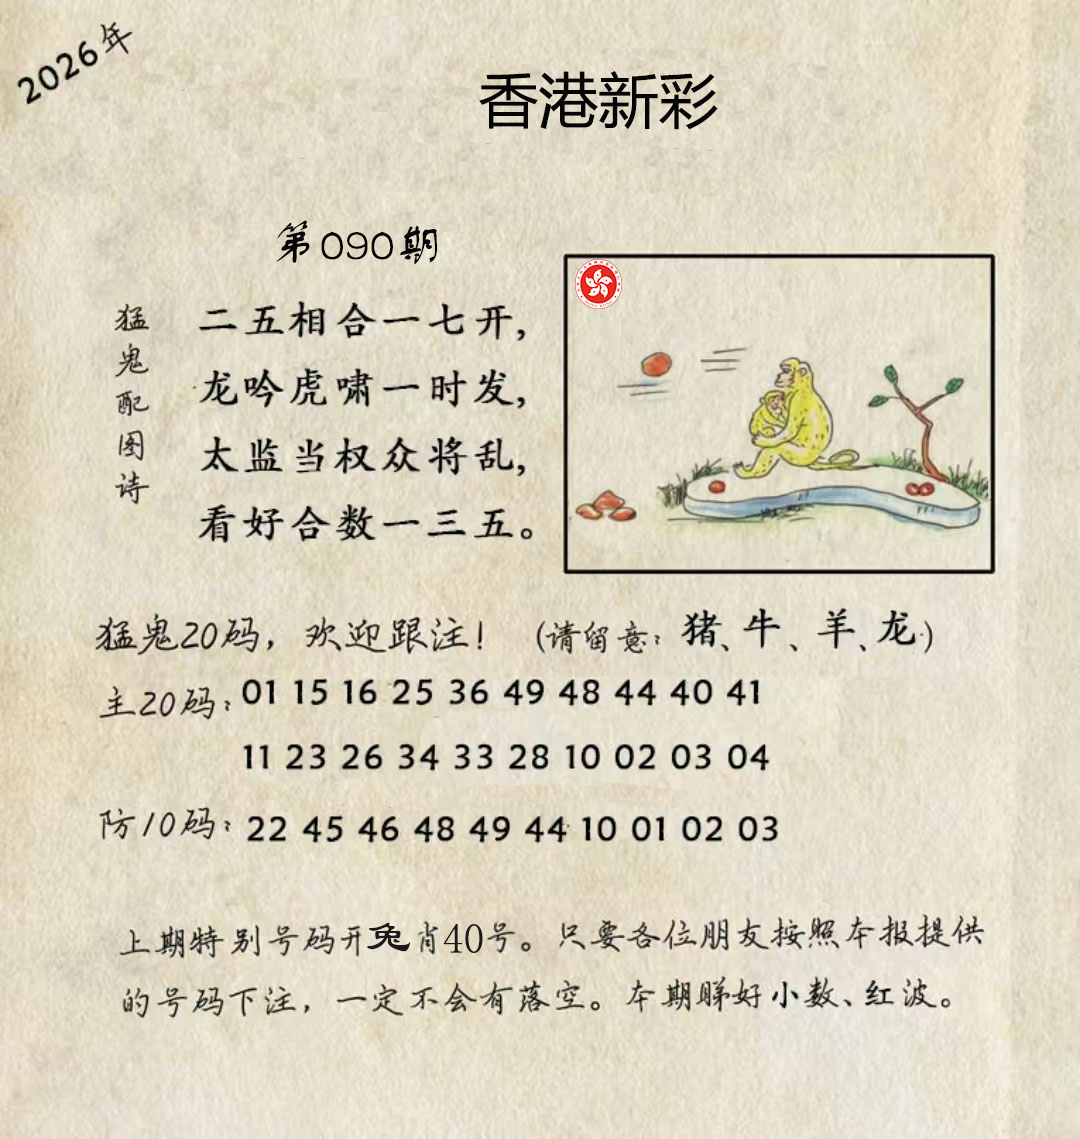 2026年
香港新彩
第090期
猛鬼配图诗
二五相合一七开，
龙吟虎啸一时发，
太监当权众将乱，
看好合数一三五。
猛鬼20码，欢迎跟注！（请留意：猪、牛、羊、龙）
主20码：01 15 16 25 36 49 48 44 40 41
11 23 26 34 33 28 10 02 03 04
防10码：22 45 46 48 49 44 10 01 02 03
上期特别号码开兔肖40号。只要各位朋友按照本报提供
的号码下注，一定不会有落空。本期睇好小数、红波。